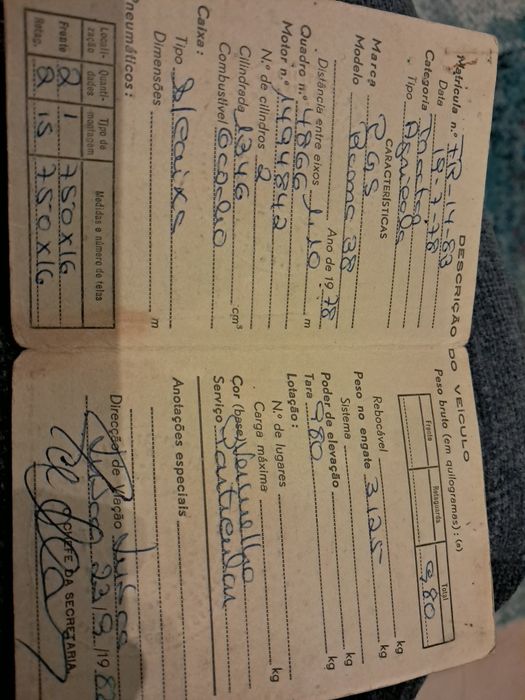 DESCRIÇÃO DO VEÍCULO
Matrícula n.º TR-14-83
Data 19-7-78
Categoria Tractor
Tipo Agrícola
CARACTERÍSTICAS
Marca
Modelo 38
Ano de 1978
Distância entre eixos m
Quadro n.º 4866
Motor n.º 1494842
N.º de cilindros 2
Cilindrada cm³
Combustível
Caixa:
Tipo S/Caixa
Dimensões m
Pneumáticos:
Locali-zação Quanti-dades Tipo de montagem Medidas e número de telas
Frente 2 1 750x16
Retag. 2 S 750x16
Peso bruto (em quilogramas): (a)
Frente Retaguarda Total
980
Rebocável kg
Peso no engate 3125 kg
Sistema
Poder de elevação kg
Tara 980
Lotação:
N.º de lugares
Carga máxima kg
Cor (base) Vermelho
Serviço Particular
Anotações especiais
Direcção de Viação
23/9/1982
O CHEFE DA SECRETARIA